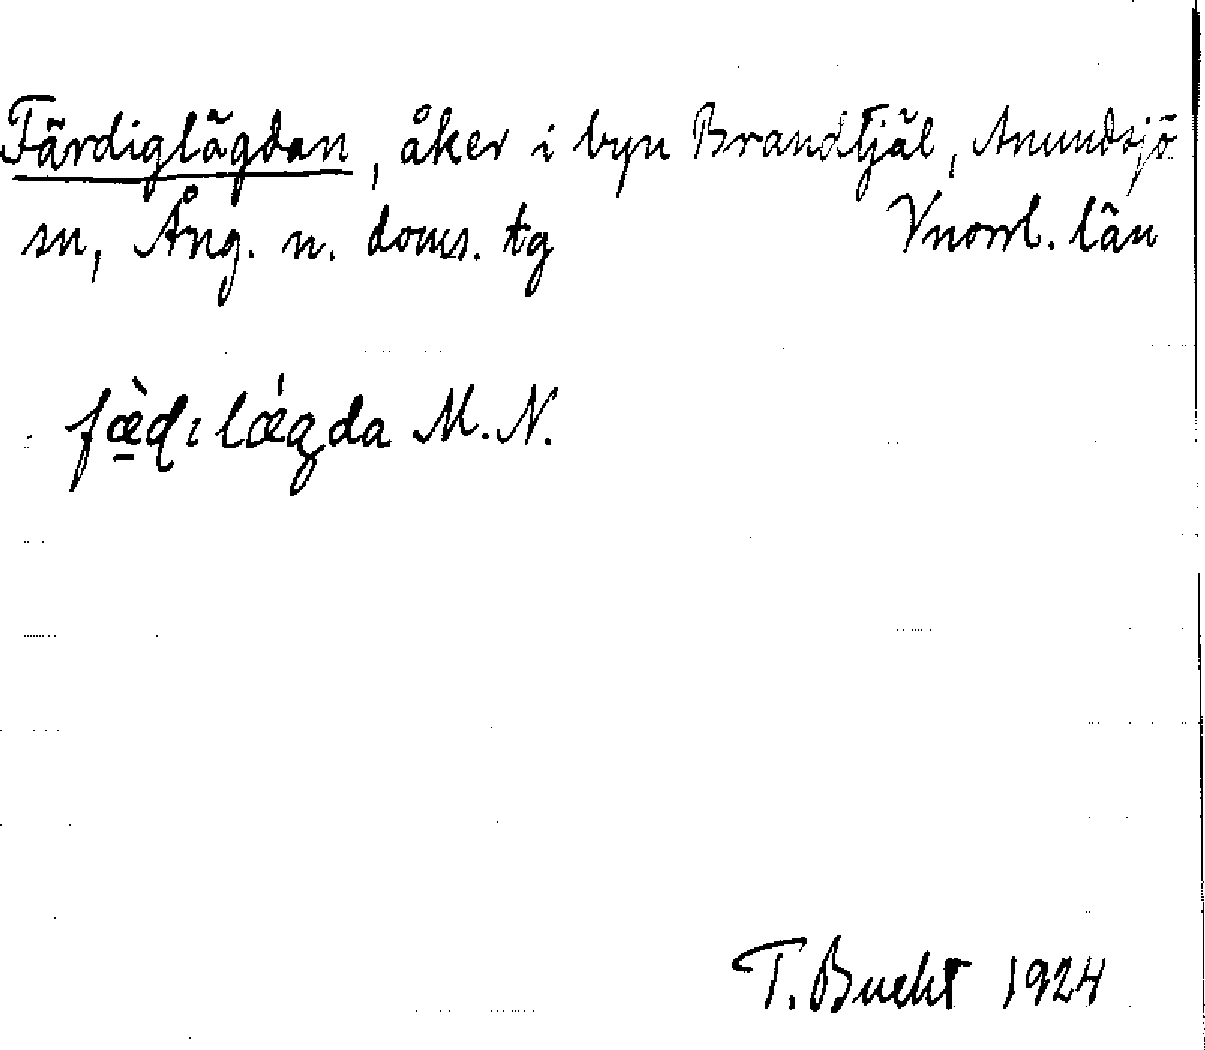 Färdiglägdan, åker i byn Brandtjäl, Anundsjö
sn, Ång. n. doms. tg Vnorrl. län
fæ̠̀dɩlǽgda M. N.
T. Bucht 1924